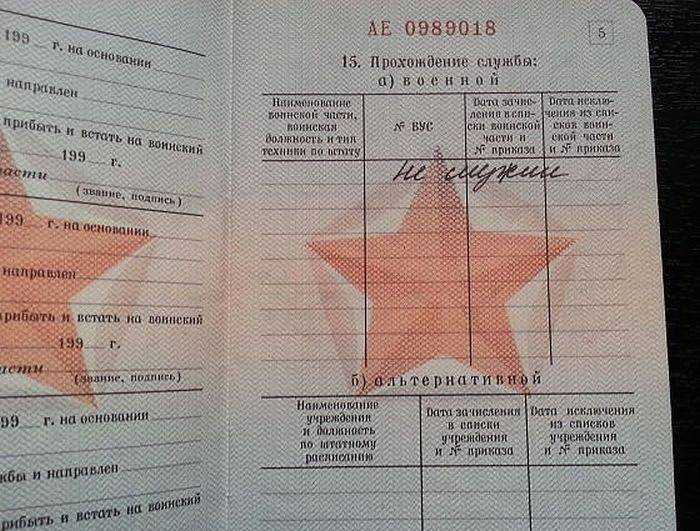 199 г. на основании
направлен
прибыть и встать на воинский
199 г.
части
(звание, подпись)
199 г. на основании
направлен
прибыть и встать на воинский
199 г.
части
(звание, подпись)
99 г. на основании
жбы и направлен
рибыть и встать на воинский
АЕ 0989018
5
15. Прохождение службы:
а) военной
Наименование
воинской части,
воинская
должность и тип
техники по штату
№ ВУС
Дата зачис-
ления в спи-
ски воинской
части и
№ приказа
Дата исклю-
чения из спи-
сков воин-
ской части
и № приказа
Не служил
б) альтернативной
Наименование
учреждения
и должность
по штатному
расписанию
Дата зачисления
в списки
учреждения
и № приказа
Дата исключения
из списков
учреждения
и № приказа